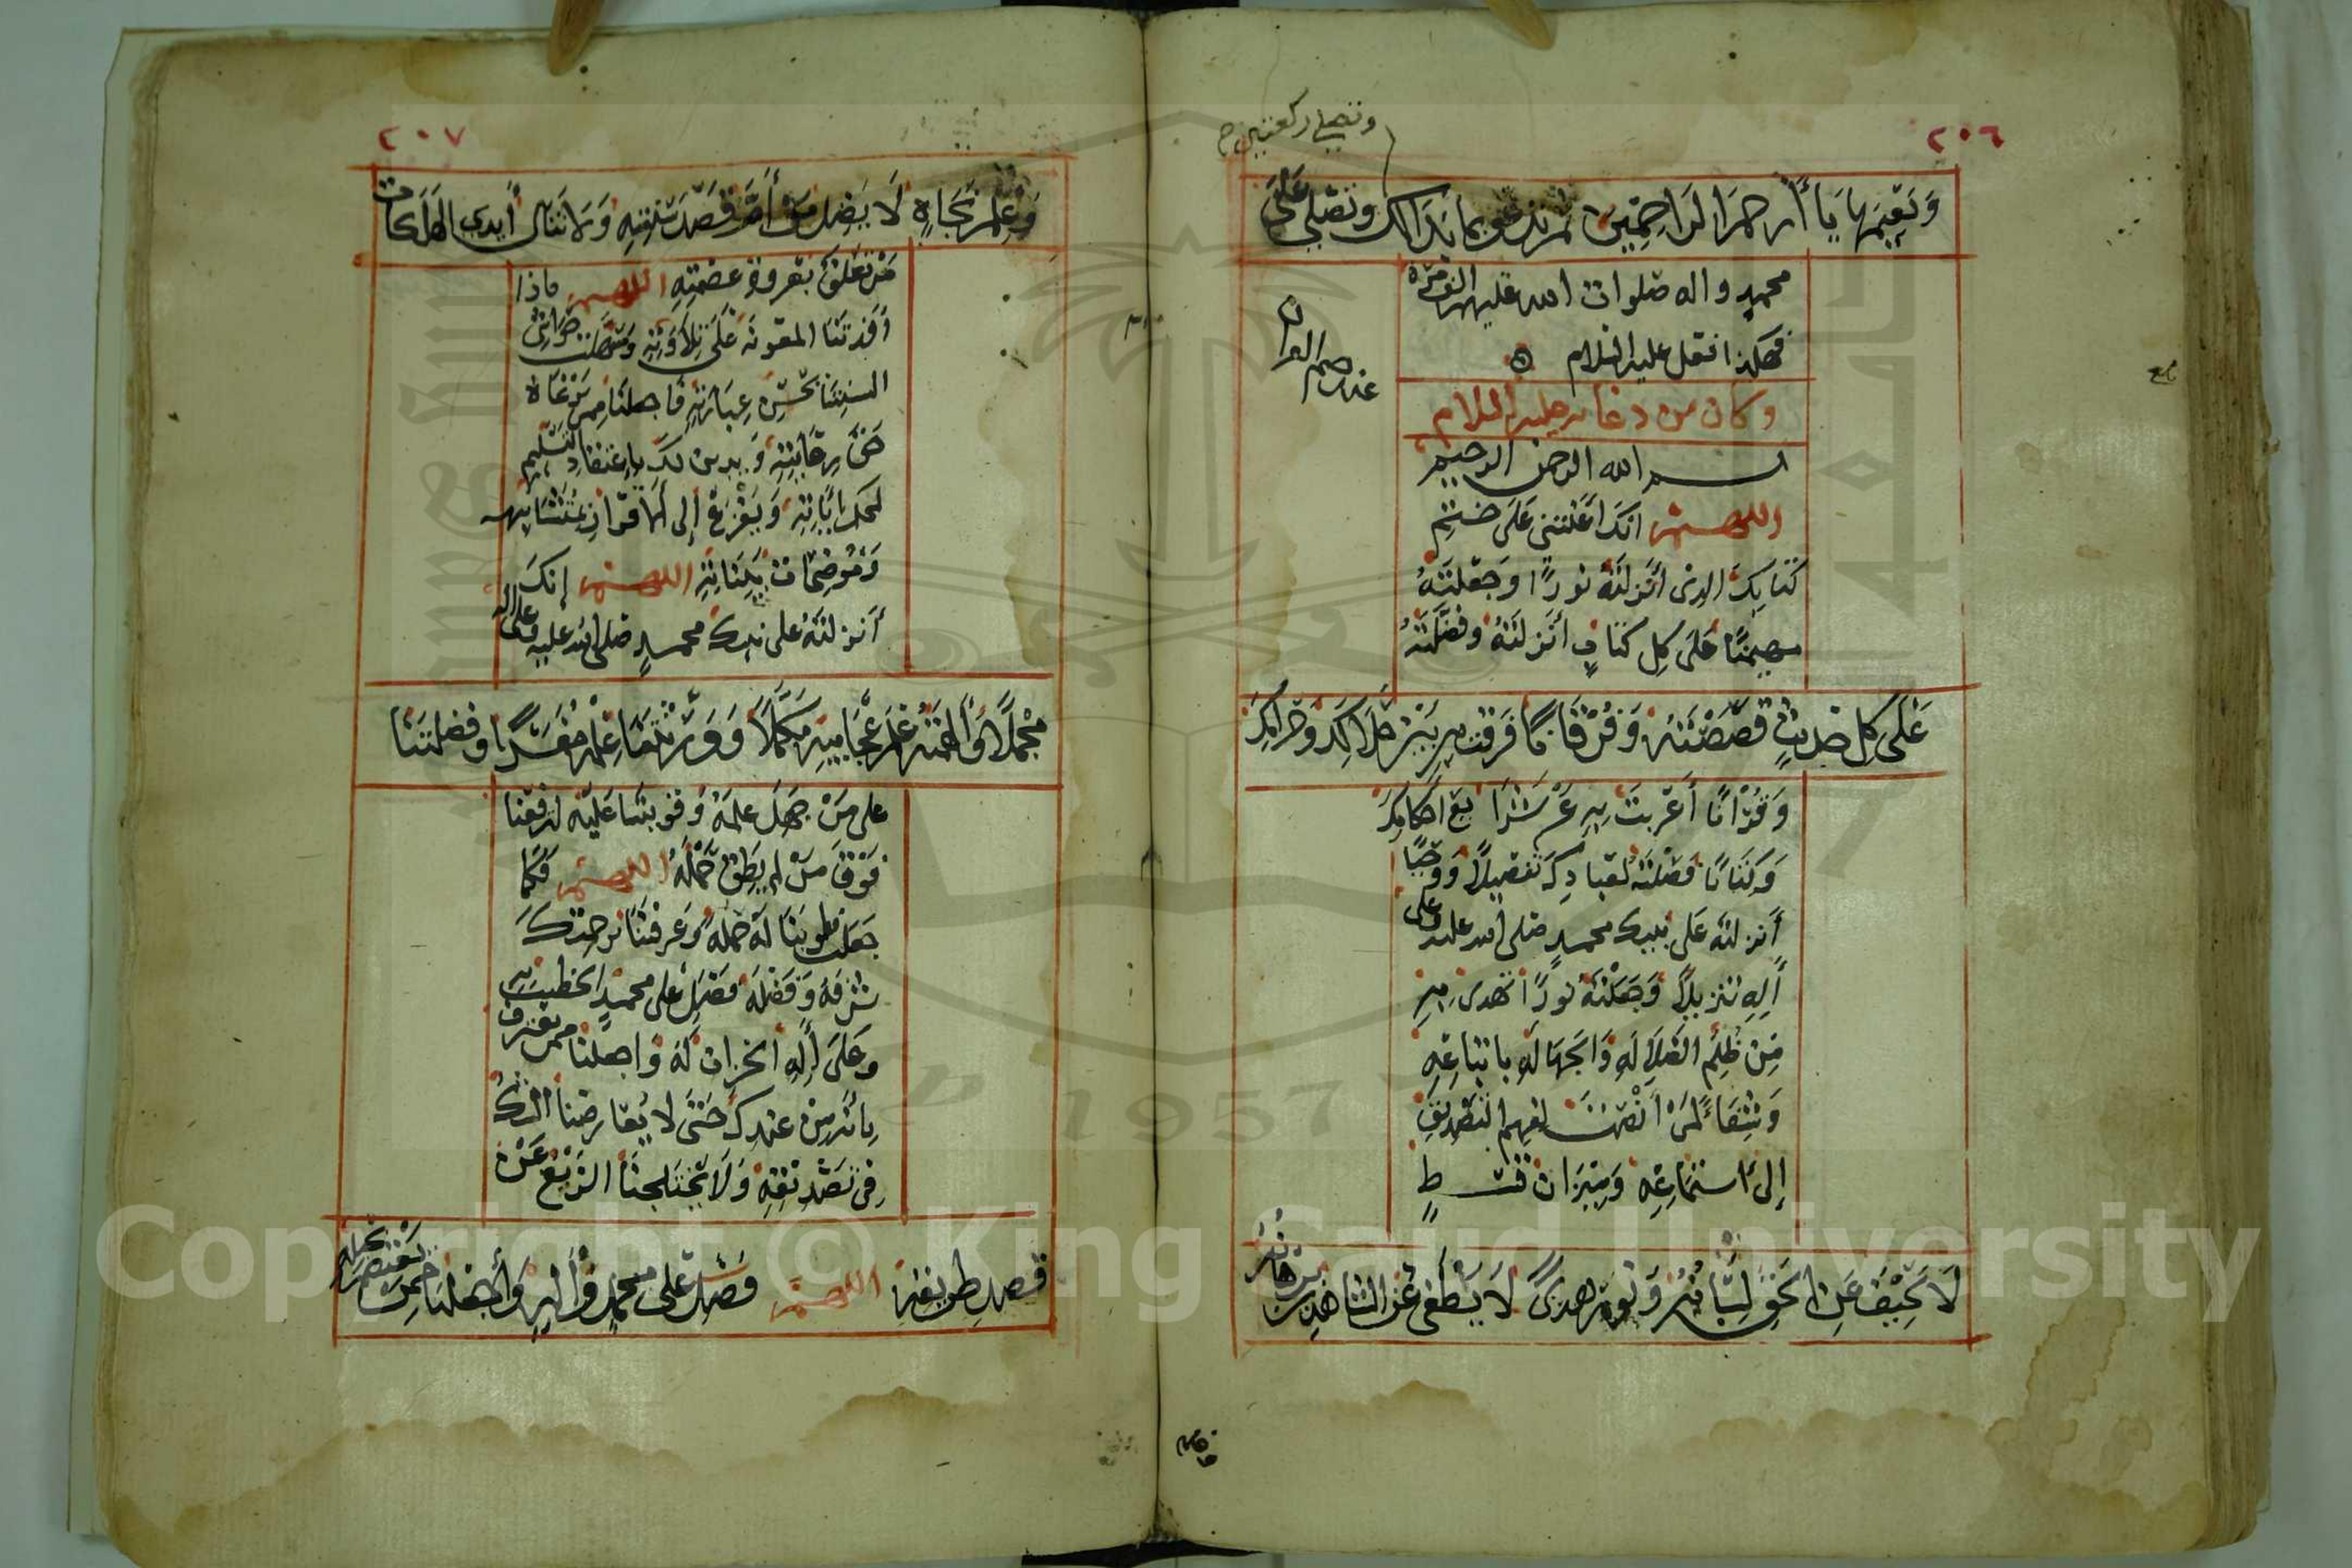 ٢٠٦
وتصلي ركعتين
وَنَعِيمَهَا يَا أَرْحَمَ الرَاحِمِينَ ثم تدعو بما بدا لك وتصلي عَلَى
محمدٍ واله صلوات الله عليهم الف مرة
فهكذا افعل عليه السلام
وكان من دعائه عليه السلام
عند ختم القران
بسم الله الرحمن الرحيم
اللهم انكَ اَعَنْتَني عَلَى خَتْمِ
كتابِكَ الذي أَنْزَلْتَهُ نورًا وجَعَلْتَهُ
مهيمنًا عَلَى كلِ كتابٍ أنْزَلْتَهُ وفَضَّلْتَهُ
عَلَى كل حديثٍ قَصَصْتَهُ وَفُرْقَانًا فَرَقْتَ بِهِ بَيْنَ حَلَالِكَ وَحَرَامِكَ
وَقُرْانًا أَعْرَبْتَ بِهِ عَنْ شَرَايعِ احْكَامِكَ
وَكِتَابًا فَصَّلْتَهُ لعبادِكَ تفصيلًا وَوَحْيًا
أَنْزلتَه عَلَى نبيك محمدٍ صلى الله عليه وعلى
آلِهِ تنزيلًا وَجَعَلْتَهُ نورًا نهتدي مِن
ظُلَم الضَلَالَةِ وَالجَهَالَةِ باتباعِهِ
وَشِفَاءً لمَنْ أَنْصَتَ بفهم التصديقِ
إلى اسْتِمَاعِهِ وَمِيزَانَ قسطٍ
لَا يَحِيفُ عَنِ الحَقِّ لِسَانُهُ وَنُورَ هدىً لَا يَطْفَى عَنِ الشَاهِدِينَ بُرْهَانُهُ
٢٠٧
وَعَلَمَ نَجَاةٍ لَا يَضِل مَنْ أَمَّ قَصْدَ سُنَّتِهِ وَلَا تَنَالُ أَيدي الهَلَكَاتِ
مَنْ تعَلَّقَ بعروة عصمتِهِ اللهم فاذا
أَفَدْتَنَا المعونَةَ عَلَى تِلَاوَتِهِ وسَهَّلْتَ جَوَاسِيَ
السِنَتِنَا بحُسْنِ عِبَارَتِهِ فاجعلنَا مِمن يَرْعَاهُ
حَقَّ رِعَايَتِهِ وَيدين لكَ باعتقادِ التسليم
لمحكم ايَاتِهِ وَيَفْزَعُ إلى الاقرارِ بمتشابهه
وَمُوضِحَاتِ بَيِّنَاتِهِ اللهم إنكَ
أَنزلتَهُ على نبيك محمدٍ صلى الله عليه وعلى اله
مُجْمَلًا وَأَلْهَمْتَهُ عِلْمَ عَجَايبِهِ مكَمَّلًا وَوَرَّثْتَنَا عِلْمَهُ مُفَسَّرًا وفضلتَنَا
على مَنْ جَهلَ علمَهُ وَقَويتنَا عَلَيْهِ لترفعَنا
فَوْقَ مَنْ لم يُطِقْ حَمْلَهُ اللهم فَكمَا
جَعَلْتَ قلوبَنَا لَهُ حَمَلَةً وَعرفتَنا برحمتك
شرفَهُ وَفَضْلَهُ فَصَلِّ على محمدٍ الخطيب بِهِ
وعَلَى آلِهِ الخزانِ لَهُ وَاجعلنَا ممن يعترف
بِأنَّه مِنْ عندِكَ حَتَّى لا يُعَارضنا الشَكُّ
في تَصْديقِهِ وَلَا يَخْتَلِجنَا الزَيْغُ عَنْ
قصدِ طريقه اللهم فَصَل على محمدٍ وَآلِهِ وَاجْعَلنا مِمن يَعْتَصِمُ بحبله